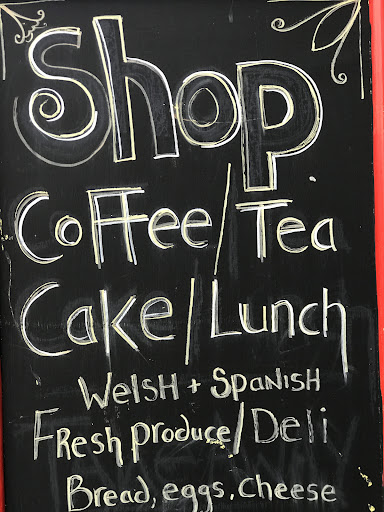 Shop
Coffee/Tea
Cake/Lunch
Welsh + Spanish
Fresh produce/Deli
Bread, eggs, cheese